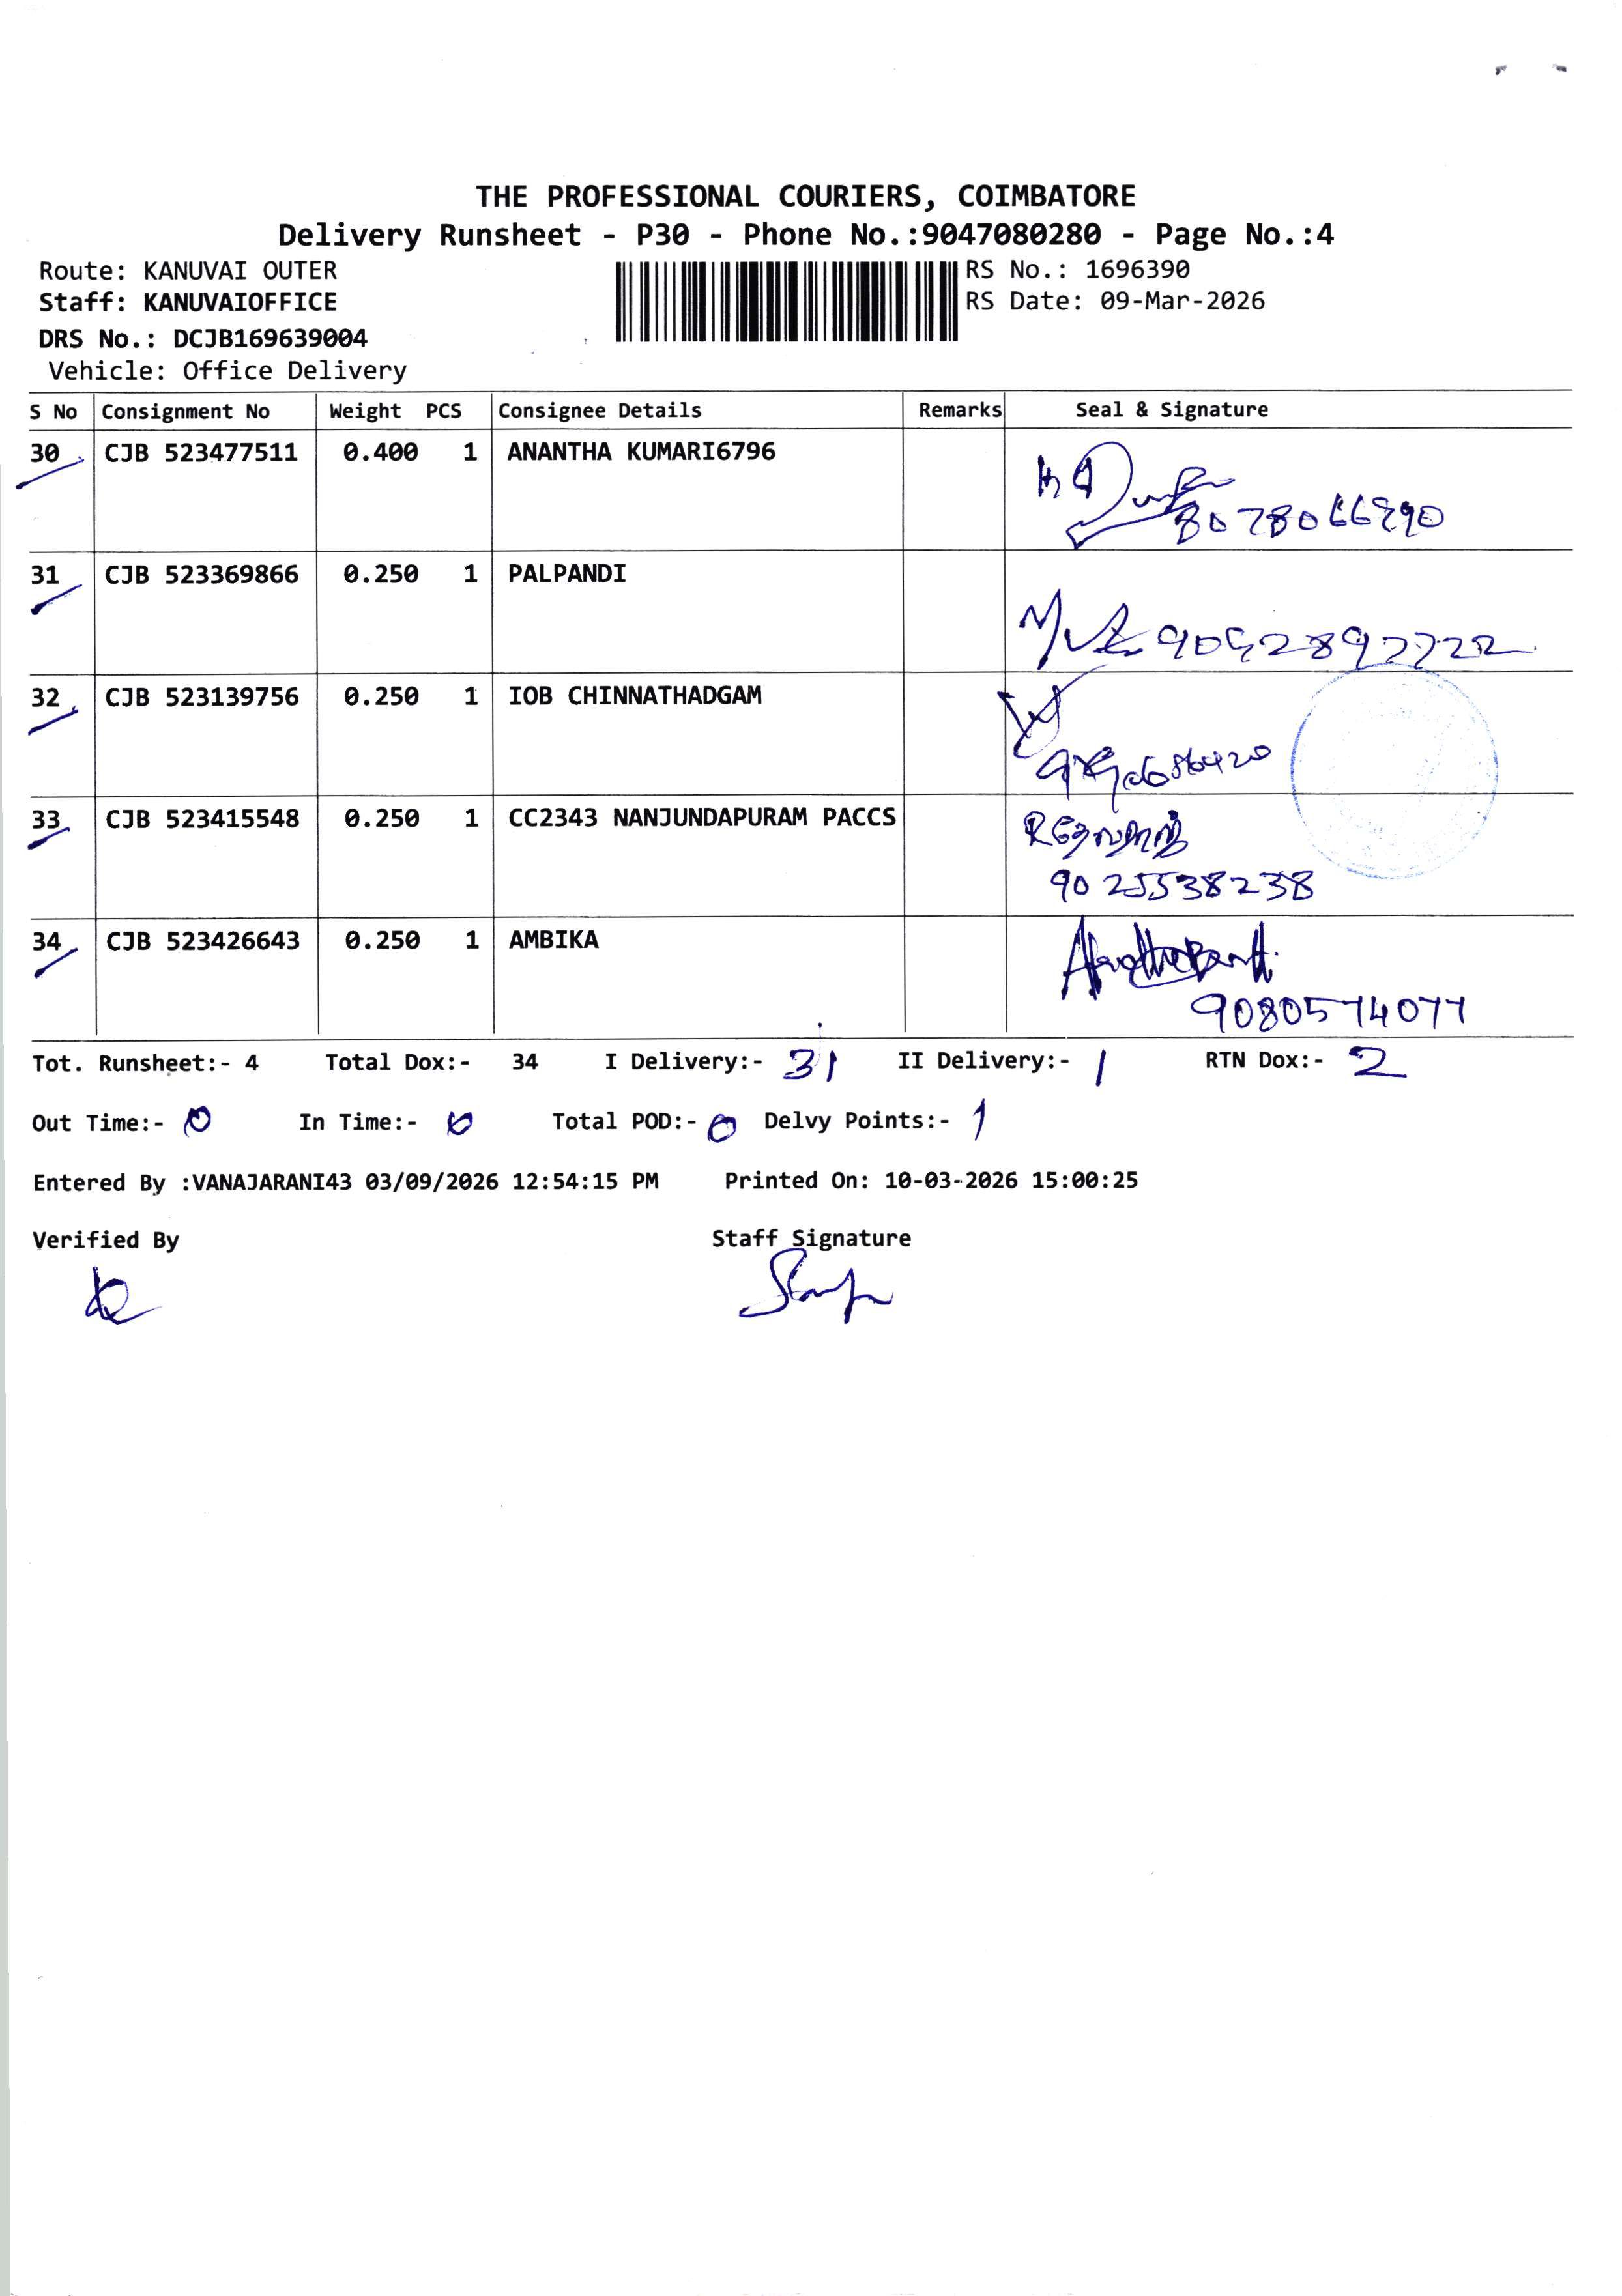 THE PROFESSIONAL COURIERS, COIMBATORE
Delivery Runsheet - P30 - Phone No.:9047080280 - Page No.:4
Route: KANUVAI OUTER
RS No.: 1696390
Staff: KANUVAIOFFICE
RS Date: 09-Mar-2026
DRS No.: DCJB169639004
Vehicle: Office Delivery
S No Consignment No Weight PCS Consignee Details Remarks Seal & Signature
30 CJB 523477511 0.400 1 ANANTHA KUMARI6796
31 CJB 523369866 0.250 1 PALPANDI
32 CJB 523139756 0.250 1 IOB CHINNATHADGAM
33 CJB 523415548 0.250 1 CC2343 NANJUNDAPURAM PACCS
9025538238
34 CJB 523426643 0.250 1 AMBIKA
9080574077
Tot. Runsheet:- 4 Total Dox:- 34 I Delivery:- 31 II Delivery:- 1 RTN Dox:- 2
Out Time:- 0 In Time:- 0 Total POD:- 0 Delvy Points:- 1
Entered By :VANAJARANI43 03/09/2026 12:54:15 PM Printed On: 10-03-2026 15:00:25
Verified By Staff Signature